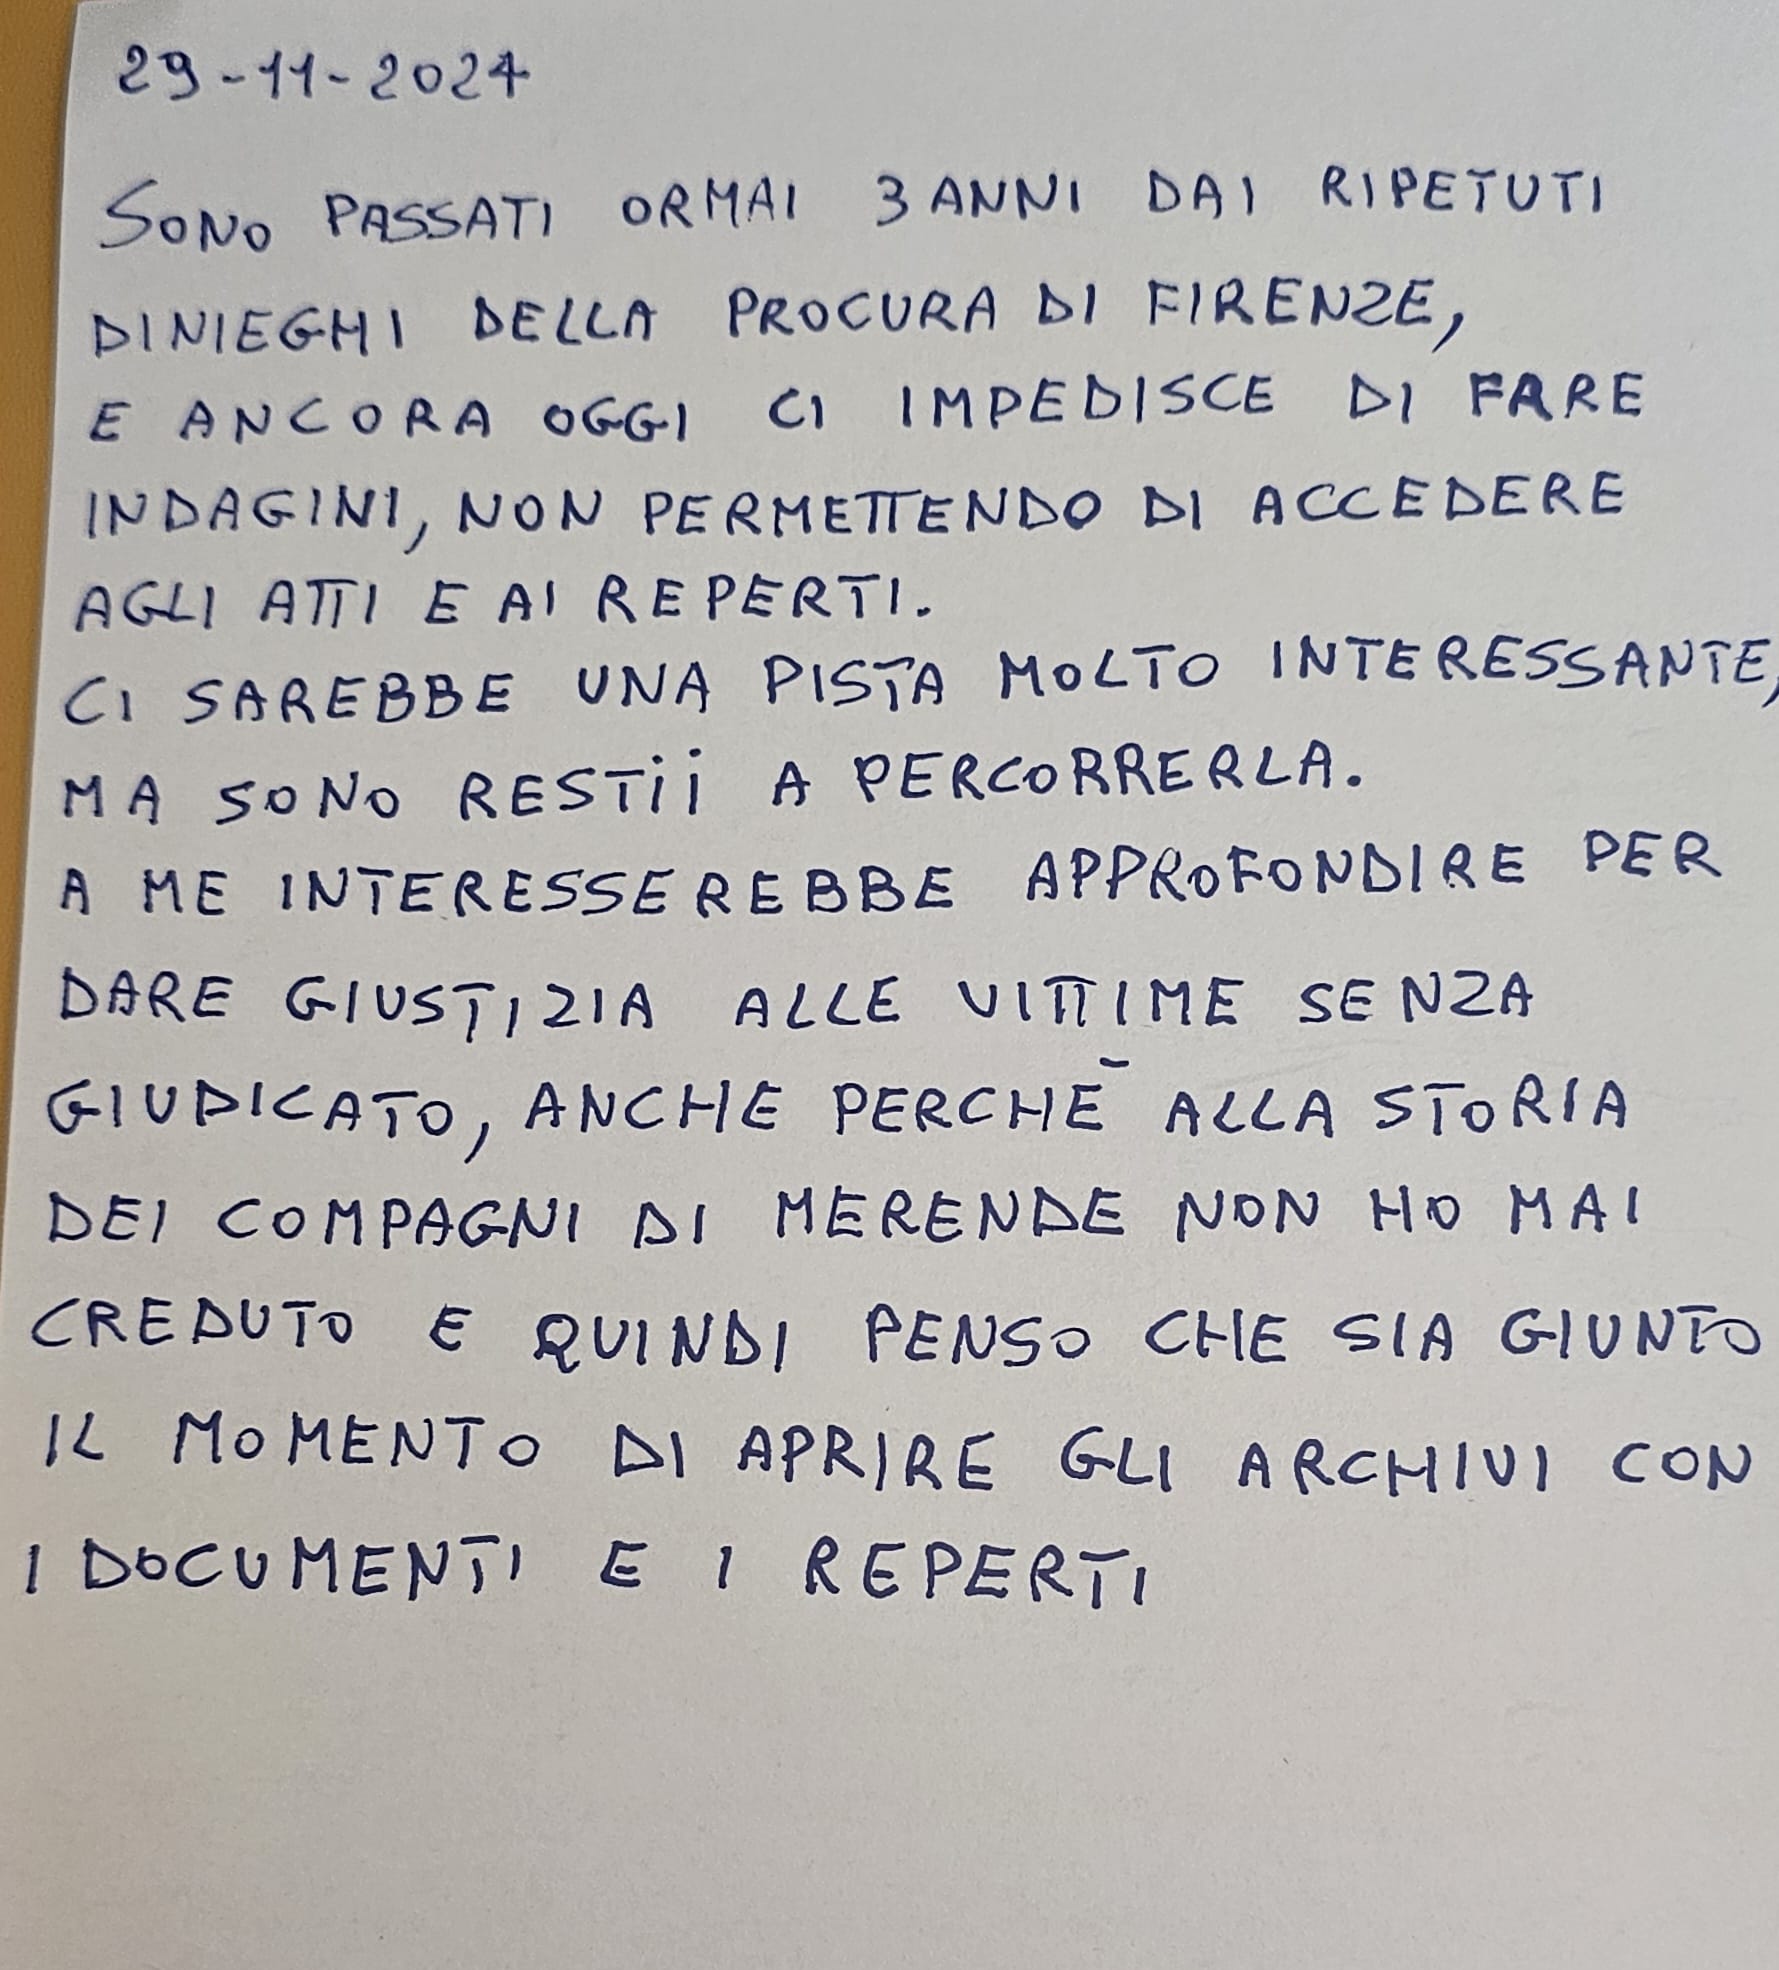 29-11-2024
SONO PASSATI ORMAI 3 ANNI DAI RIPETUTI
DINIEGHI DELLA PROCURA DI FIRENZE,
E ANCORA OGGI CI IMPEDISCE DI FARE
INDAGINI, NON PERMETTENDO DI ACCEDERE
AGLI ATTI E AI REPERTI.
CI SAREBBE UNA PISTA MOLTO INTERESSANTE,
MA SONO RESTII A PERCORRERLA.
A ME INTERESSEREBBE APPROFONDIRE PER
DARE GIUSTIZIA ALLE VITTIME SENZA
GIUDICATO, ANCHE PERCHĒ ALLA STORIA
DEI COMPAGNI DI MERENDE NON HO MAI
CREDUTO E QUINDI PENSO CHE SIA GIUNTO
IL MOMENTO DI APRIRE GLI ARCHIVI CON
I DOCUMENTI E I REPERTI